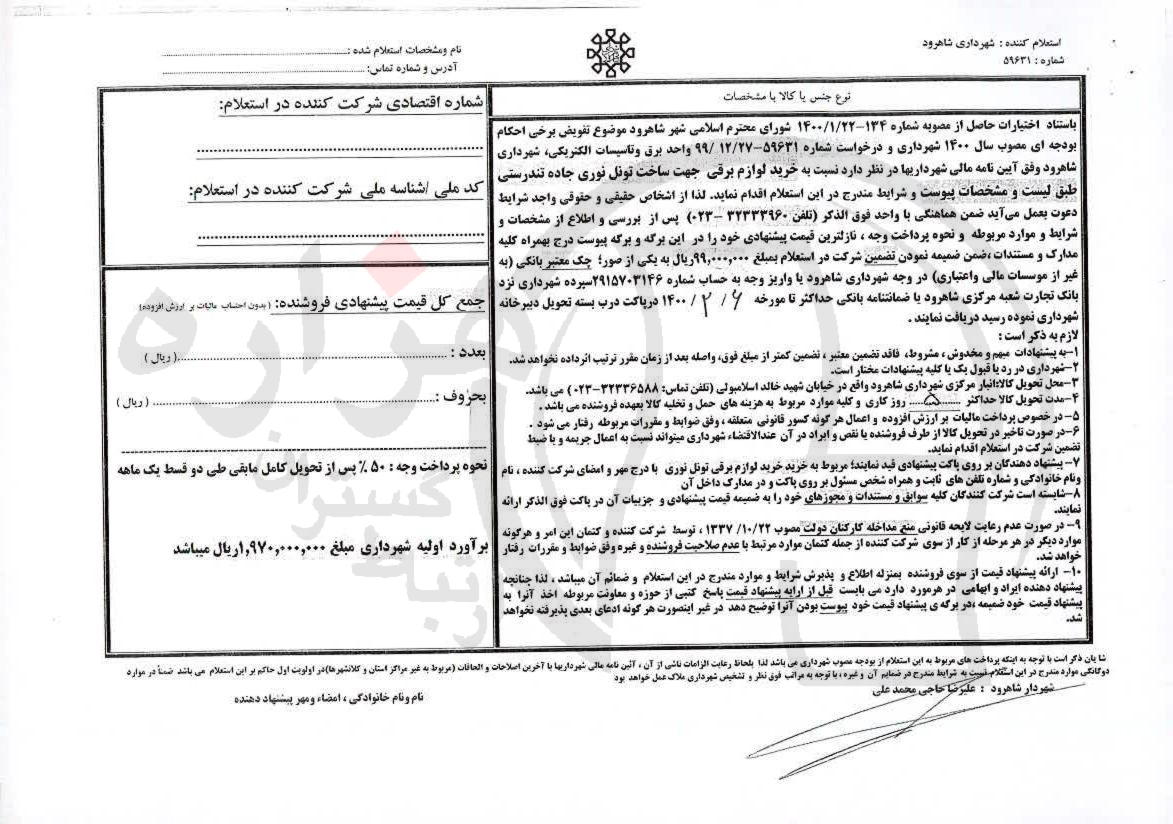 استعلام کننده : شهرداری شاهرود
شماره : ۵۹۶۳۱
نام ومشخصات استعلام شده :
آدرس و شماره تماس:
نوع جنس یا کالا با مشخصات
باستناد اختیارات حاصل از مصوبه شماره ۱۳۴-۱۴۰۰/۱/۲۲ شورای محترم اسلامی شهر شاهرود موضوع تفویض برخی احکام
بودجه ای مصوب سال ۱۴۰۰ شهرداری و درخواست شماره ۵۹۶۳۱-۹۹/ ۱۲/۲۷ واحد برق وتاسیسات الکتریکی، شهرداری
شاهرود وفق آیین نامه مالی شهرداریها در نظر دارد نسبت به خرید لوازم برقی جهت ساخت تونل نوری جاده تندرستی
طبق لیست و مشخصات پیوست و شرایط مندرج در این استعلام اقدام نماید. لذا از اشخاص حقیقی و حقوقی واجد شرایط
دعوت بعمل می‌آید ضمن هماهنگی با واحد فوق الذکر (تلفن ۳۲۳۳۳۹۶۰ -۰۲۳) پس از بررسی و اطلاع از مشخصات و
شرایط و موارد مربوطه و نحوه پرداخت وجه ، نازلترین قیمت پیشنهادی خود را در این برگه و برگه پیوست درج بهمراه کلیه
مدارک و مستندات ،ضمن ضمیمه نمودن تضمین شرکت در استعلام بمبلغ ۹۹,۰۰۰,۰۰۰ریال به یکی از صور؛ چک معتبر بانکی (به
غیر از موسسات مالی واعتباری) در وجه شهرداری شاهرود یا واریز وجه به حساب شماره ۲۹۱۵۷۰۳۱۴۶سپرده شهرداری نزد
بانک تجارت شعبه مرکزی شاهرود یا ضمانتنامه بانکی حداکثر تا مورخه ۱۴۰۰/۲/۶ درپاکت درب بسته تحویل دبیرخانه
شهرداری نموده رسید دریافت نمایند .
لازم به ذکر است :
۱-به پیشنهادات مبهم و مخدوش ، مشروط، فاقد تضمین معتبر ، تضمین کمتر از مبلغ فوق، واصله بعد از زمان مقرر ترتیب اثرداده نخواهد شد.
۲-شهرداری در رد یا قبول یک یا کلیه پیشنهادات مختار است.
۳-محل تحویل کالا:انبار مرکزی شهرداری شاهرود واقع در خیابان شهید خالد اسلامبولی (تلفن تماس: ۳۲۳۳۶۵۸۸-۰۲۳ ) می باشد.
۴-مدت تحویل کالا حداکثر ....۵.... روز کاری و کلیه موارد مربوط به هزینه های حمل و تخلیه کالا بعهده فروشنده می باشد .
۵- در خصوص پرداخت مالیات بر ارزش افزوده و اعمال هر گونه کسور قانونی متعلقه ، وفق ضوابط و مقررات مربوطه رفتار می شود .
۶-در صورت تاخیر در تحویل کالا از طرف فروشنده یا نقص و ایراد در آن عندالاقتضاء شهرداری میتواند نسبت به اعمال جریمه و یا ضبط
تضمین شرکت در استعلام اقدام نماید.
۷- پیشنهاد دهندگان بر روی پاکت پیشنهادی قید نمایند؛ مربوط به خرید خرید لوازم برقی تونل نوری با درج مهر و امضای شرکت کننده ، نام
ونام خانوادگی و شماره تلفن های ثابت و همراه شخص مسئول بر روی پاکت و در مدارک داخل آن
۸-شایسته است شرکت کنندگان کلیه سوابق و مستندات و مجوزهای خود را به ضمیمه قیمت پیشنهادی و جزییات آن در پاکت فوق الذکر ارائه
نمایند.
۹- در صورت عدم رعایت لایحه قانونی منع مداخله کارکنان دولت مصوب ۱۳۳۷ /۱۰/۲۲ ، توسط شرکت کننده و کتمان این امر و هرگونه
موارد دیگر در هر مرحله از کار از سوی شرکت کننده از جمله کتمان موارد مرتبط با عدم صلاحیت فروشنده و غیره وفق ضوابط و مقررات رفتار
خواهد شد.
۱۰- ارائه پیشنهاد قیمت از سوی فروشنده بمنزله اطلاع و پذیرش شرایط و موارد مندرج در این استعلام و ضمائم آن میباشد ، لذا چنانچه
پیشنهاد دهنده ایراد و ابهامی در هرمورد دارد می بایست قبل از ارایه پیشنهاد قیمت پاسخ کتبی از حوزه و معاونت مربوطه اخذ آنرا به
پیشنهاد قیمت خود ضمیمه ،در برگه ی پیشنهاد قیمت خود پیوست بودن آنرا توضیح دهد در غیر اینصورت هر گونه ادعای بعدی پذیرفته نخواهد
شد.
شماره اقتصادی شرکت کننده در استعلام:
کد ملی /شناسه ملی شرکت کننده در استعلام:
جمع کل قیمت پیشنهادی فروشنده: (بدون احتساب مالیات بر ارزش افزوده)
بعدد : (ریال )
بحروف : ( ریال )
نحوه پرداخت وجه : ۵۰ ٪ پس از تحویل کامل مابقی طی دو قسط یک ماهه
برآورد اولیه شهرداری مبلغ ۱,۹۷۰,۰۰۰,۰۰۰ریال میباشد
شا یان ذکر است با توجه به اینکه پرداخت های مربوط به این استعلام از بودجه مصوب شهرداری می باشد لذا بلحاظ رعایت الزامات ناشی از آن ، آئین نامه مالی شهرداریها با آخرین اصلاحات و الحاقات (مربوط به غیر مراکز استان و کلانشهرها)در اولویت اول حاکم بر این استعلام می باشد ضمناً در موارد
دوگانگی موارد مندرج در این استعلام نسبت به شرایط مندرج در ضمایم آن و غیره ، با توجه به مراتب فوق نظر و تشخیص شهرداری ملاک عمل خواهد بود
شهردار شاهرود : علیرضا حاجی محمد علی
نام ونام خانوادگی ، امضاء ومهر پیشنهاد دهنده
هزاره
گستران
ارتباط